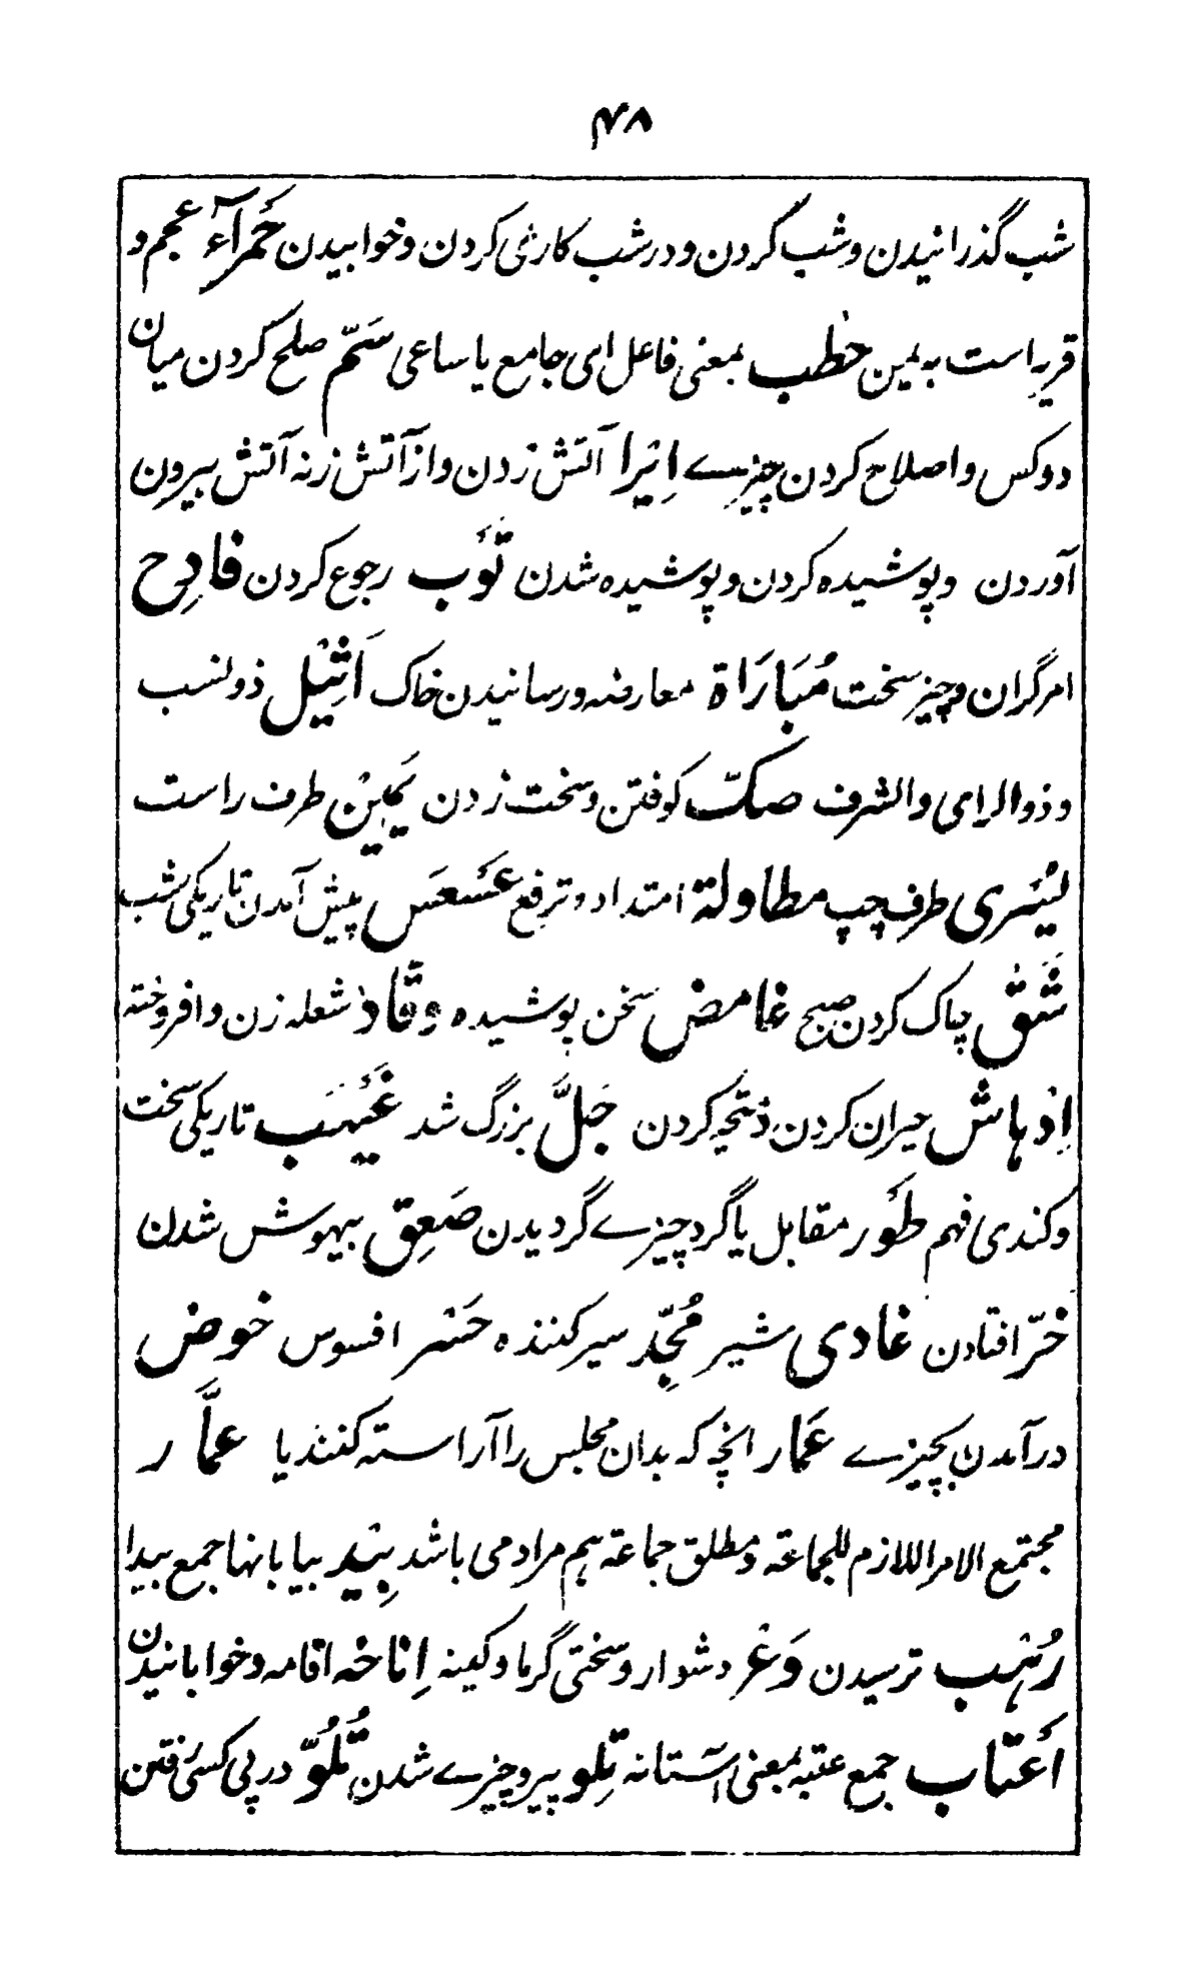 ۴۸
شب گذرانیدن و شب کردن و در شب کاری کردن و خوابیدن حَمرآء عجم و
قریه است به یمن خطب بمعنی فاعل ای جامع یا ساعی سَمّ صلح کردن میان
دوکس و اصلاح کردن چیزے اِیْرا آتش زدن و از آتش زنه آتش بیرون
آوردن و پوشیده کردن و پوشیده شدن تَوْب رجوع کردن فادِح
امر گران و چیز سخت مُبَارَاة معارضه و رسانیدن خاک اَثِیْل ذو نسب
و ذو الرای و الشرف صکّ کوفتن و سخت زدن یَمِیْن طرف راست
یُسْری طرف چپ مطاولة امتداد و ترفع عَسْعَس پیش آمدن تاریکی شب
شَقّ چاک کردن صبح غامض سخن پوشیده وقّاد شعله زن و افروخته
اِدْهاش حیران کردن ذبح کردن جَلَّ بزرگ شد غَیْهَب تاریکی سخت
و کندی فهم طَوْر مقابل یا گرد چیزے گردیدن صَعِق بیهوش شدن
خَرّ افتادن غادی شیر مُجِّد سیر کننده حَسْر افسوس خوض
در آمدن بچیزے عَمَار انچه که بدان مجلس را آراسته کنند یا عمَّار
مجتمع الامر اللازم للجماعة و مطلق جماعة هم مراد می باشد بِیْد بیابانها جمع بیدا
رُهْب ترسیدن وَغْر دشوار و سختی گرما و کینه اِناخه اقامه و خوابانیدن
اَعْتاب جمع عتبه بمعنی آستانه تِلو پیرو چیزے شدن تُلُوّ در پی کسی رفتن